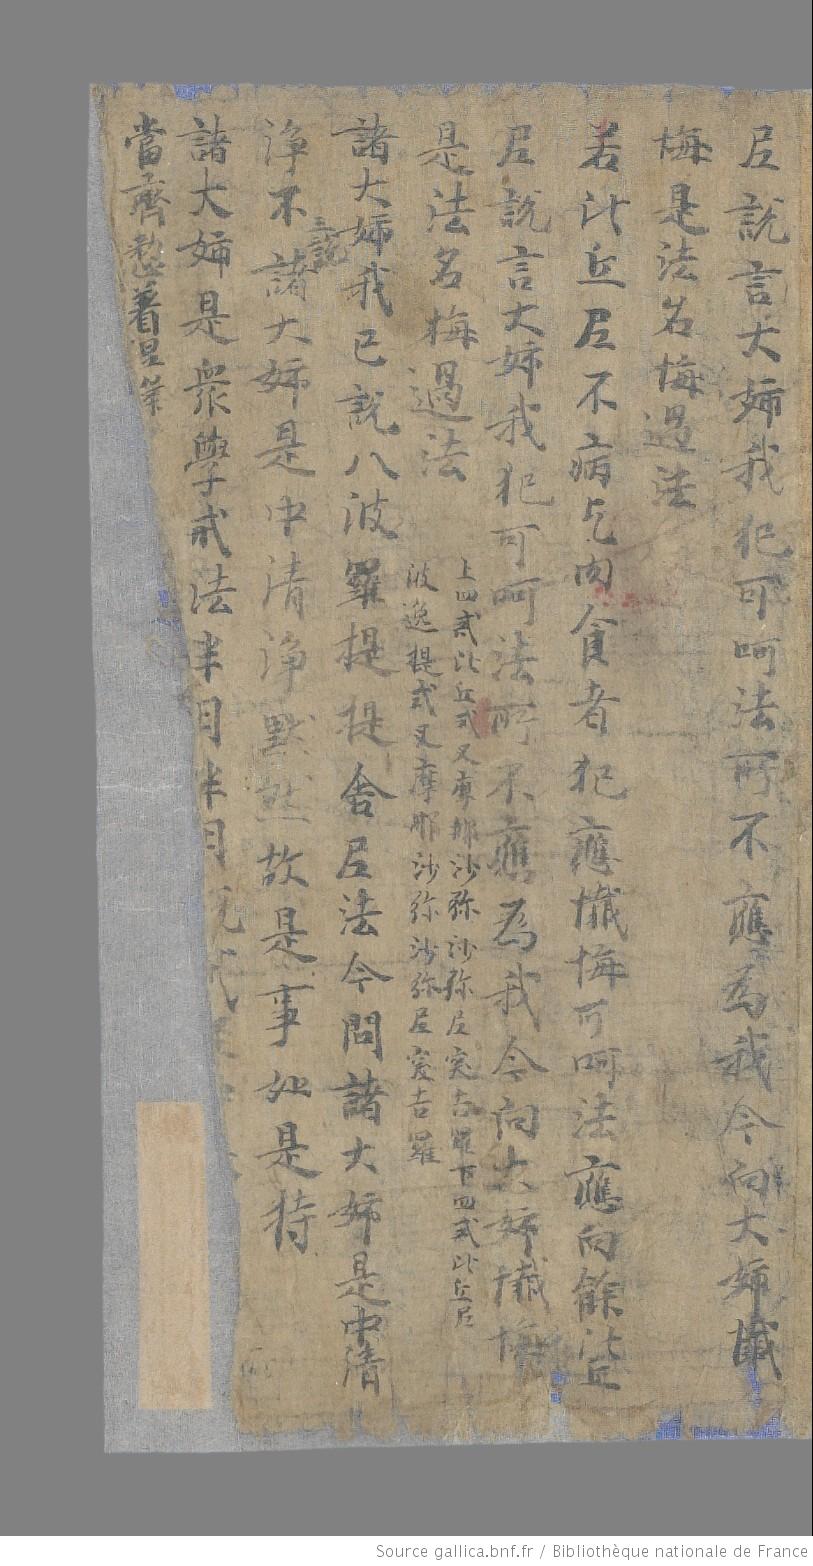 尼說言大姊我犯可呵法所不應為我今向大姊懺
悔是法名悔過法
若比丘尼不病乞肉食者犯應懺悔可呵法應向餘比丘
尼說言大姊我犯可呵法所不應為我今向大姊懺悔
是法名悔過法
上四貳比丘式叉摩那沙弥沙弥尼突吉羅下四貳比丘尼
波逸提式叉摩那沙弥沙弥尼突吉羅
諸大姊我已說八波羅提提舍尼法今問諸大姊是中清
淨不
三說
諸大姊是中清淨默然故是事如是持
諸大姊是眾學戒法半月半月說戒
當齊整著涅
Source gallica.bnf.fr / Bibliothèque nationale de France